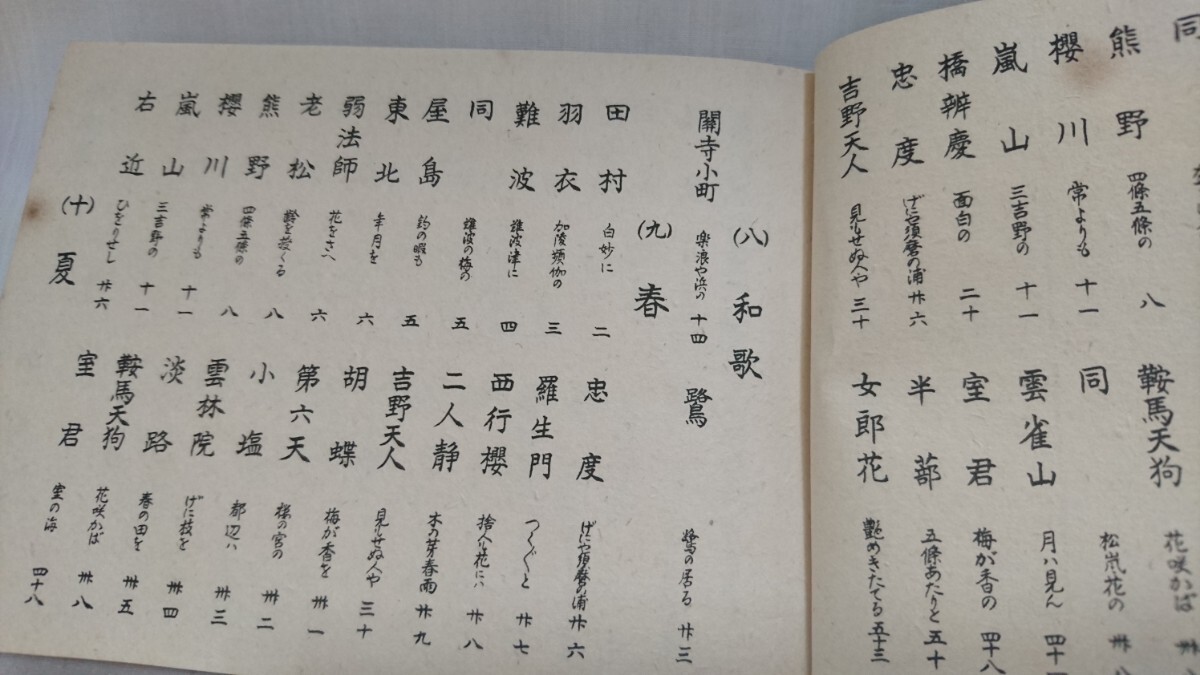 同
熊野 四條五條の 八
櫻川 常よりも 十一
嵐山 三吉野の 十一
橋辨慶 面白の 二十
忠度 げにや須磨の浦 廿六
吉野天人 見もせぬ人や 三十
鞍馬天狗 花咲かば
同 松嵐花の
雲雀山 月ハ見ん 四十
室君 梅が香の 四十八
半蔀 五條あたりと 五十
女郎花 艶めきたてる 五十三
(八) 和歌
關寺小町 楽浪や浜の 十四
鷺 鷺の居る 廿三
(九) 春
田村 白妙に 二
羽衣 加陵頻伽の 三
難波 難波津に 四
同 難波の梅の 五
屋島 釣の暇も 五
東北 年月を 六
弱法師 花をさへ 六
老松 齢を授くる 八
熊野 四條五條の 八
櫻川 常よりも 十一
嵐山 三吉野の 十一
右近 ひをりせし 廿六
忠度 げにや須磨の浦 廿六
羅生門 つくづくと 廿七
西行櫻 捨人も花にハ 廿八
二人静 木の芽春雨 廿九
吉野天人 見もせぬ人や 三十
胡蝶 梅が香を 卅一
第六天 桜の宮の 卅二
小塩 都辺ハ 卅三
雲林院 げに枝を 卅四
淡路 春の田を 卅五
鞍馬天狗 花咲かば 卅八
室君 室の海 四十八
(十) 夏